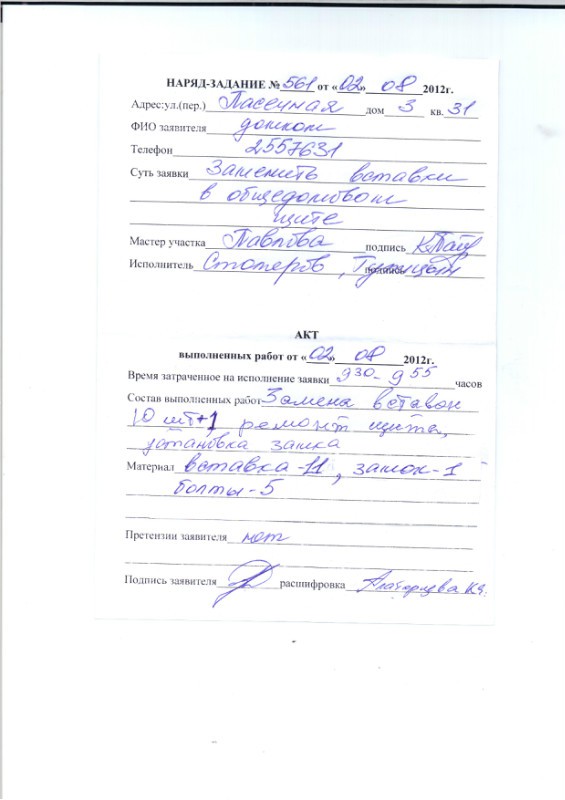 НАРЯД-ЗАДАНИЕ № 561 от «02» 08 2012г.
Адрес:ул.(пер.) Пасечная дом 3 кв. 31
ФИО заявителя домком
Телефон 2557631
Суть заявки Заменить вставки
в общедомовом
щите
Мастер участка Павлова подпись
Исполнитель Столеров, подпись
АКТ
выполненных работ от «02» 08 2012г.
Время затраченное на исполнение заявки 9 30 - 9 55 часов
Состав выполненных работ Замена вставок
10 шт+1 ремонт щита,
установка замка
Материал вставка-11, замок-1
болты-5
Претензии заявителя нет
Подпись заявителя расшифровка